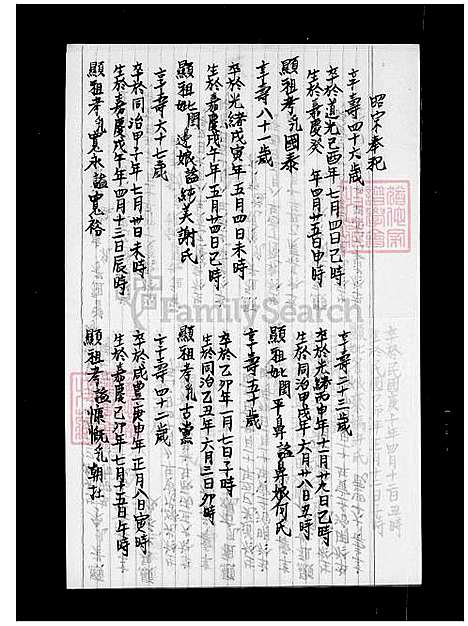 顯祖考乳寬永諡寬裕
生於嘉慶戊午年四月十三日辰時
卒於同治甲子年七月卅日未時
享壽六十七歲
顯祖妣閨 連娘諡純美謝氏
生於嘉慶戊午年五月廿四日己時
卒於光緒戊寅年五月四日未時
享壽八十一歲
顯祖考乳國泰
生於嘉慶癸 年四月廿五日申時
卒於道光己酉年七月四日己時
享壽四十六歲
昭宗奉祀
顯祖考諡慷慨乳朝社
生於嘉慶己卯年七月十五日午時
卒於咸豐庚申年正月八日寅時
享壽四十二歲
顯祖考乳古黨
生於同治乙丑年六月三日卯時
卒於乙卯年一月七日子時
享壽五十歲
顯祖妣閨平鼻諡鼻娘何氏
生於同治甲戌年六月十八日丑時
卒於光緒丙申年十一月廿九日己時
享壽二十三歲
FamilySearch